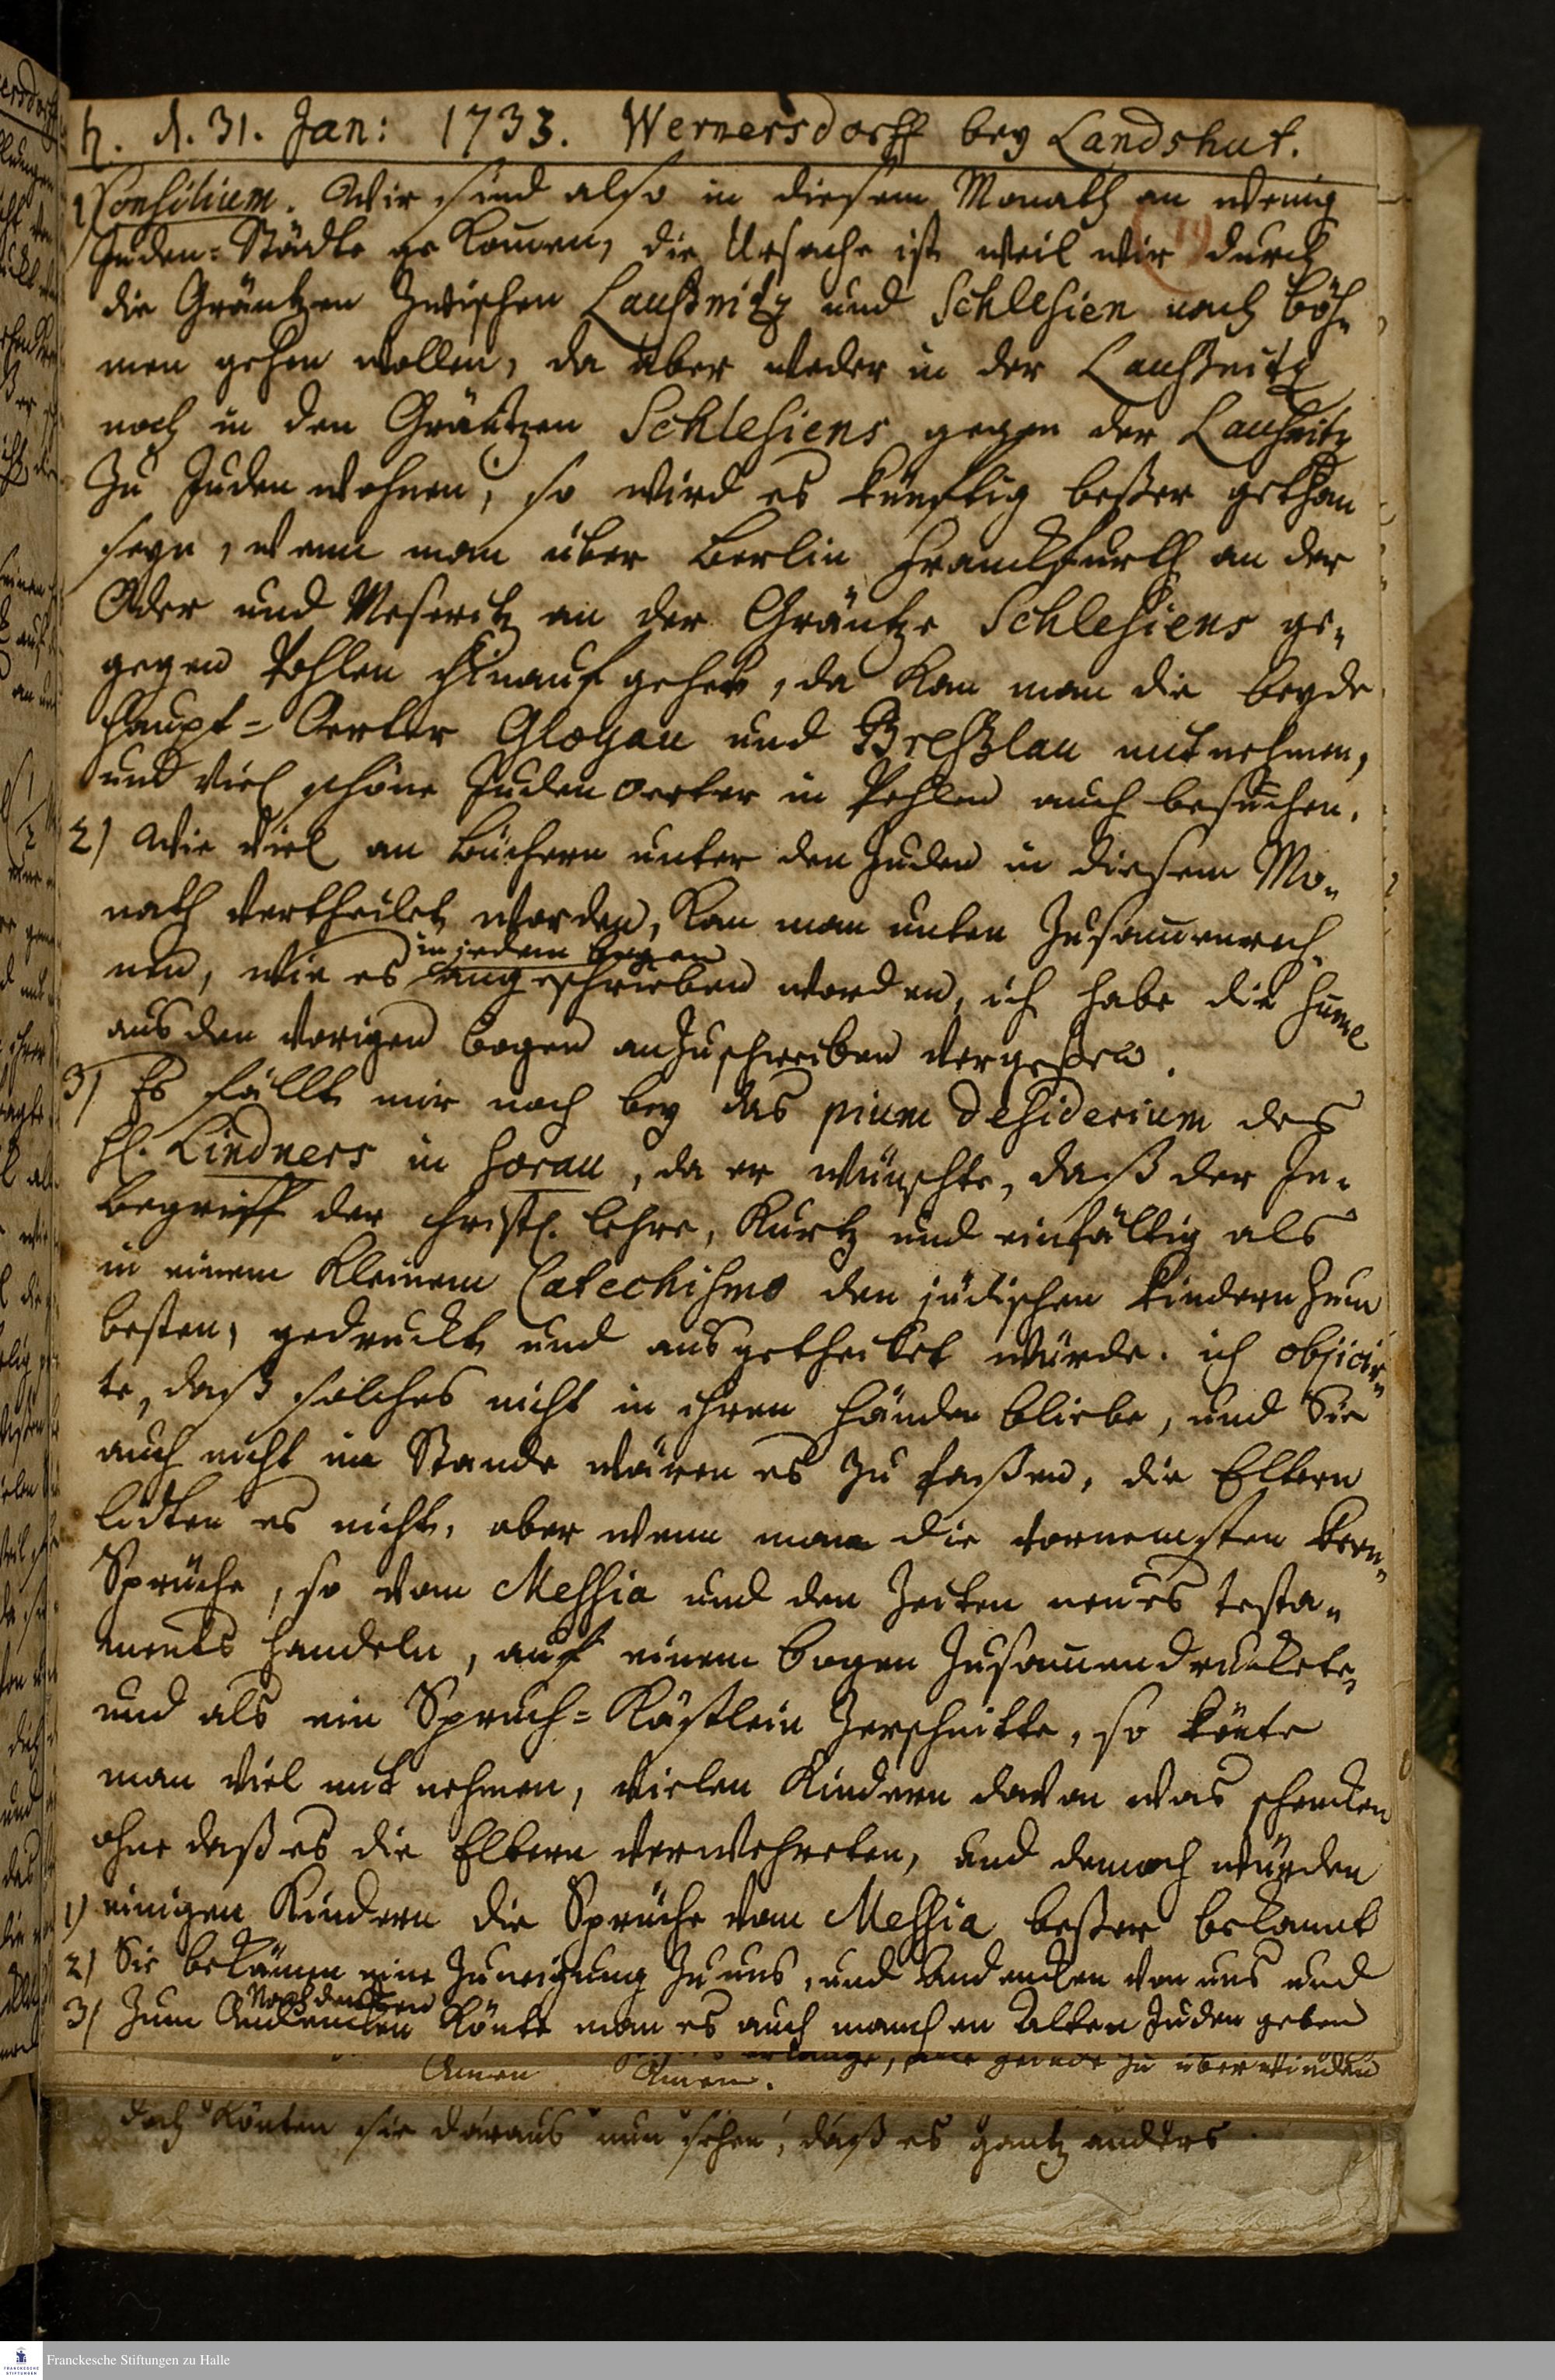 h. d. 31. Jan: 1733. Wernersdorff bey Landshut.
1) Consilium. Wir sind also in diesem Monath an wenig
Juden-Städte gekommen, die Ursache ist weil wir durch
die Gräntzen zwischen Laußnitz und Schlesien nach Böh-
men gehen wollen, da aber weder in der Laußnitz
noch in den Gräntzen Schlesiens gegen der Lausnitz
zu Juden wohnen, so wird es künftig beßer gethan
seyn, wenn man über Berlin Franckfurth an der
Oder und Meseritz an der Gräntze Schlesiens ge-
gegen Pohlen hinauf gehet, da kan man die beyde
Haupt-Oerter Glogau und Breßlau mitnehmen,
und viel schöne Juden oerter in Pohlen auch besuchen.
2) Wie viel an Büchern unter den Juden in diesem Mo-
nath vertheilet worden, kan man unten zusammenrech-
nen, wie es in jedem bogen angeschrieben worden, ich habe die
aus den vorigen bogen anzuschreiben vergeßen.
3) Es fällt mir noch bey das pium desiderium des
H. Lindners in Sorau, da er wünschte, daß der In-
begriff der christl. Lehre, kurtz und einfältig als
in einem kleinem Catechismo den jüdischen Kindern zum
besten, gedruckt und ausgetheilet würde. ich objicir-
te, daß solches nicht in ihren Händen bliebe, und Sie
auch nicht im Stande wären es zu faßen, die Eltern
lidten es nicht, aber wenn man die vornemsten Kern-
Sprüche, so vom Messia und den Zeiten neues testa-
ments handeln, auf einem bogen zusammendruckete,
und als ein Spruch-Kästlein zerschnitte, so könte
man viel mit nehmen, vielen Kindern davon was schencken
ohne daß es die Eltern verwehreten, und dennoch würden
1) einigen Kindern die Sprüche vom Messia beßer bekannt
2) Sie bekämen eine Zuneigung zu uns, und Andencken von uns und
3) zum Nachdencken könte man es auch manchen alten Juden geben
zu überwinden
Amen Amen.
doch könten sie daraus nun sehen, daß es gantz anders
Franckesche Stiftungen zu Halle